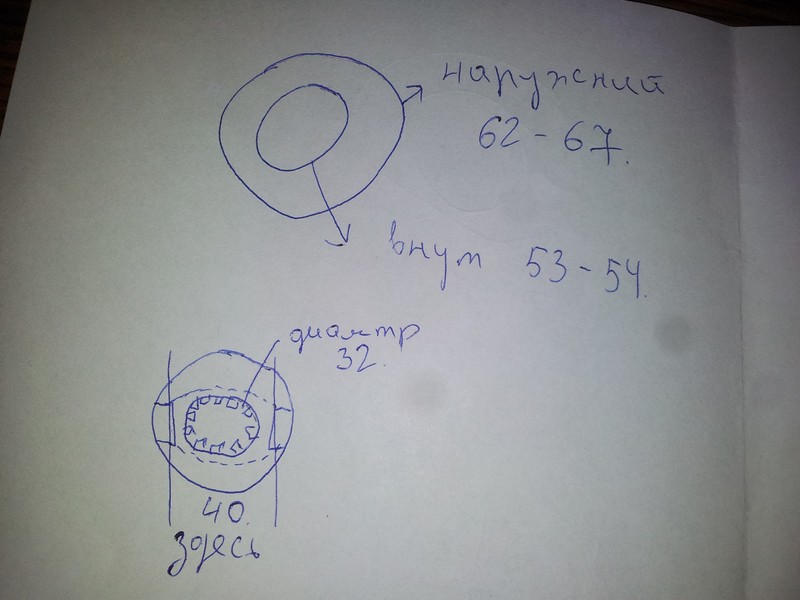 наружний
62 - 67.
внут 53 - 54.
диаметр
32.
40.
здесь